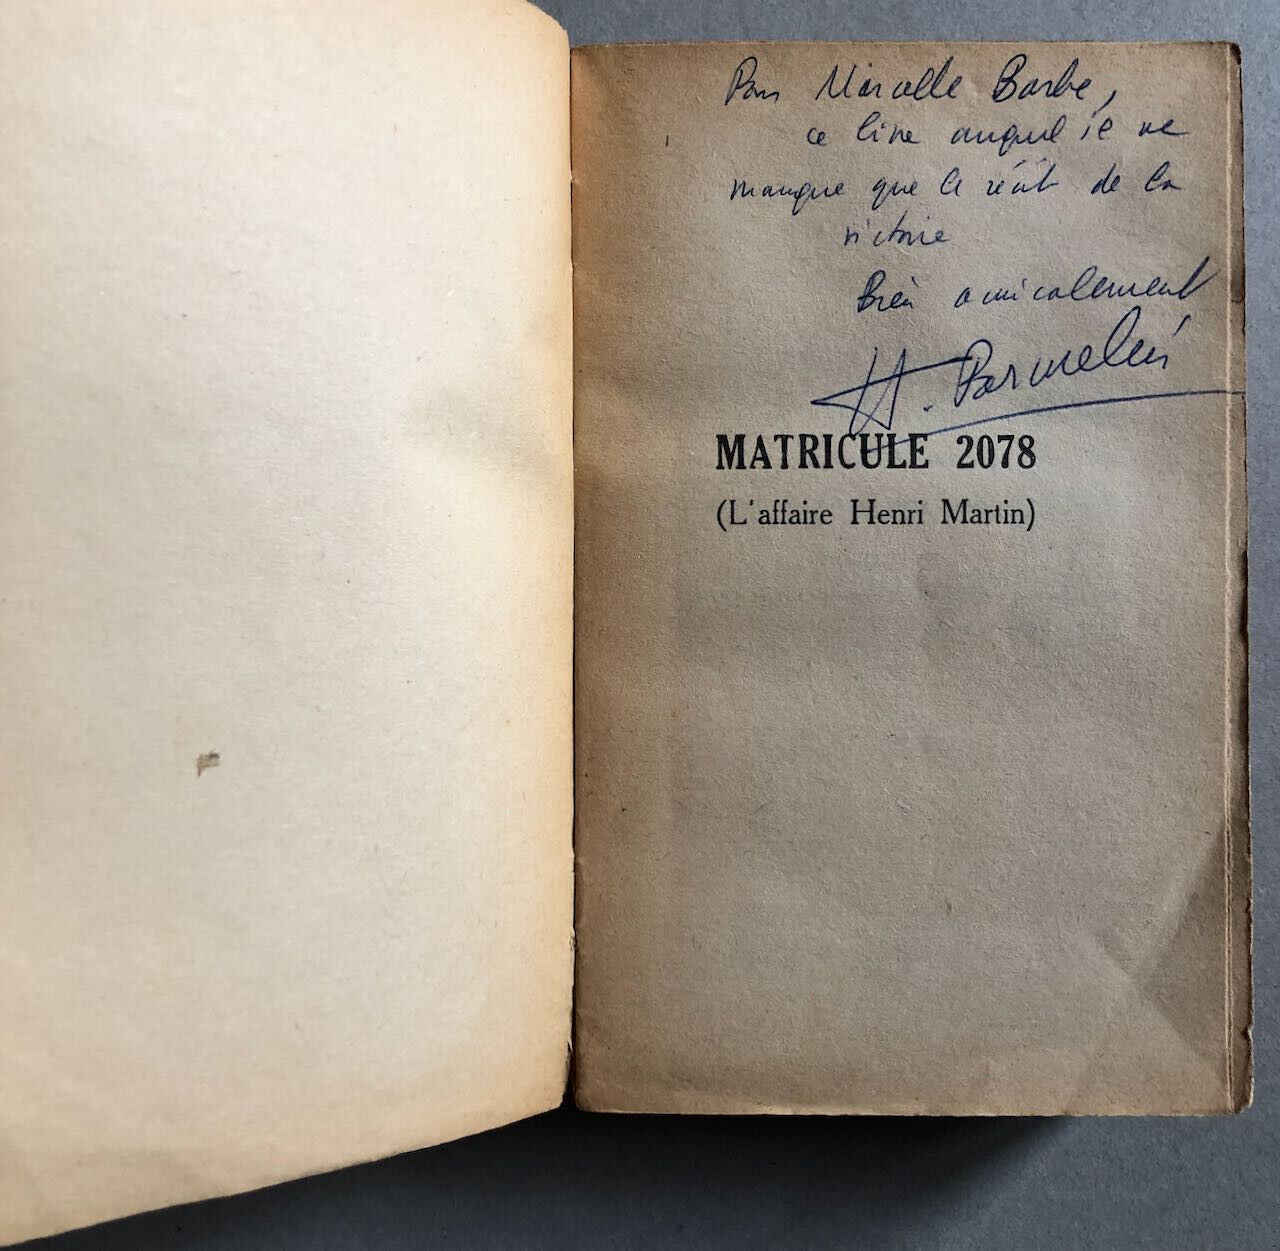 Pour Marcelle Barbe,
ce livre auquel il ne
manque que le récit de la
victoire
Bien amicalement
H. Parmelin
MATRICULE 2078
(L'affaire Henri Martin)